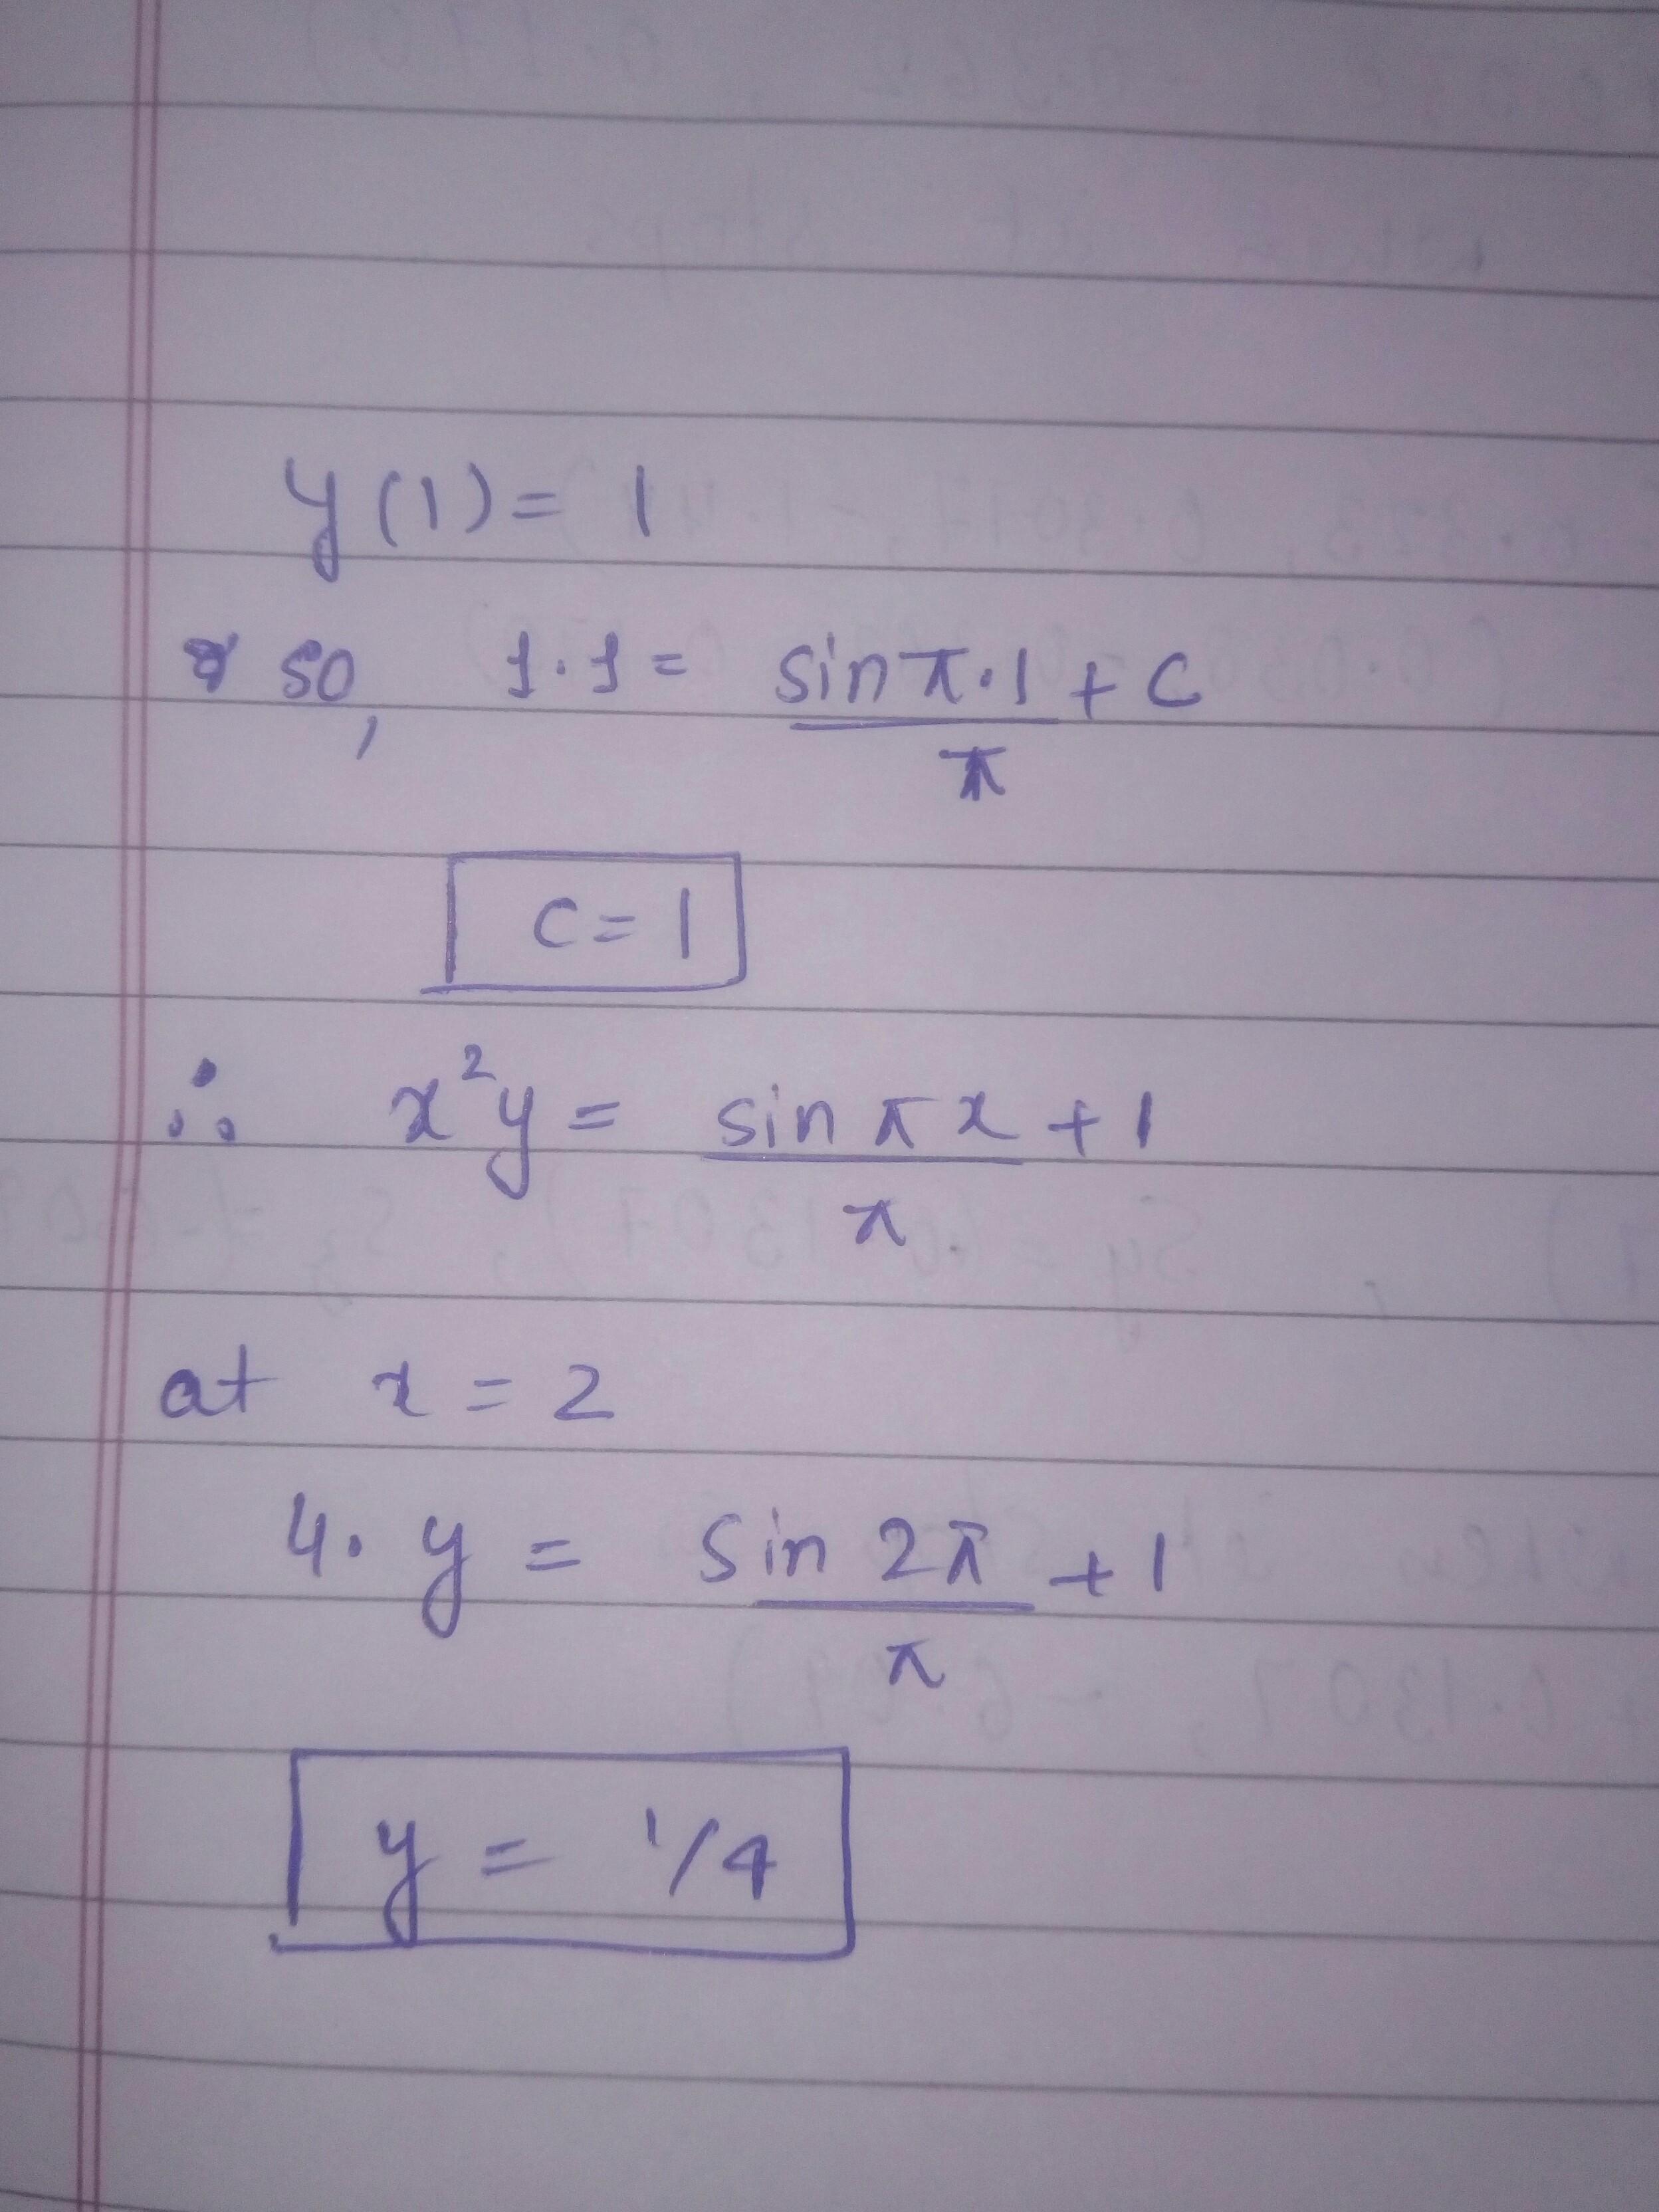 y(1) = 1
so, 1.1 = sinπ.1 + c
π
c = 1
∴ x²y = sin πx + 1
π
at x = 2
4. y = sin 2π + 1
π
y = 1/4